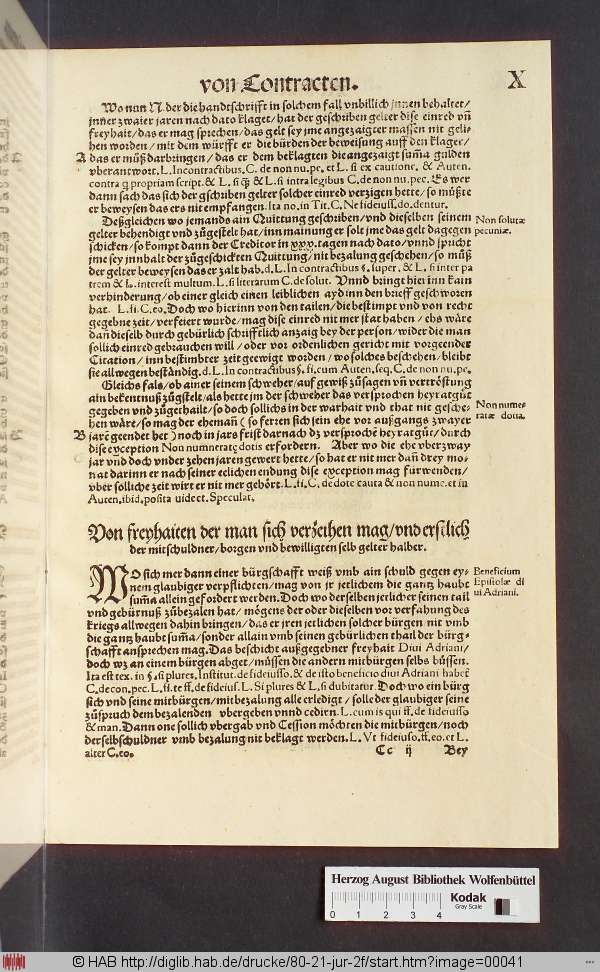 von Contracten.
X
Wo nun N. der die handtschrifft in solchem fall vnbillich jnnen behaltet/
jnner zwaier jaren nach dato klaget/hat der geschriben gelter dise einred vñ
freyhait/das er mag sprechen/das gelt sey jme angezaigter massen nit geli-
hen worden/mit dem würfft er die bürden der beweisung auff den klager/
A das er müß darbringen/das er dem beklagten die angezaigt suma gulden
vberantwort. L. In contractibus. C. de non nu. pe. et L. si ex cautione. & Auten.
contra q propriam script. & L. si qs & L. si intra legibus C. de non nu. pec. Es wer
dann sach das sich der gschriben gelter solcher einred verzigen hette/so müßte
er beweysen das ers nit empfangen. Ita no. in Tit. C. Ne fideiuss. do. dentur.
Deßgleichen wo jemands ain Quittung geschriben/vnd dieselben seinem
gelter behendigt vnd zůgestelt hat/inn mainung er solt jme das gelt dagegen
schicken/so kompt dann der Creditor in xxx. tagen nach dato/vnnd spricht
jme sey innhalt der zůgeschickten Quittung/nit bezalung geschehen/so můß
der gelter beweysen das er zalt hab. d. L. In contractibus §. super. & L. si inter pa
trem & L. interest multum. L. si literarum C. de solut. Vnnd bringt hier inn kain
verhinderung/ob einer gleich einen leiblichen ayd inn den brieff geschworen
hat. L. fi. C. eo. Doch wo hierinn von den tailen/die bestimpt vnd von recht
gegebne zeit/verfeiert wurde/mag dise einred nit mer stat haben/ehs wäre
dañ dieselb durch gebürlich schrifftlich anzaig bey der person/wider die man
sollich einred gebrauchen will/oder vor ordenlichen gericht mit vorgeender
Citation/inn bestimbter zeit geewigt worden/wo solches beschehen/bleibt
sie allwegen beständig. d. L. In contractibus §. fi. cum Auten. seq. C. de non nu. pe.
Gleichs fals/ob ainer seinem schweher/auff gewiß zůsagen vñ vertröstung
ain bekentnuß zůgstelt/als hette jm der schweher das versprochen heyratgůt
gegeben vnd zůgethailt/so doch sollichs in der warhait vnd that nit gesche-
hen wäre/so mag der ehemañ (so fertn sich sein ehe vor außgangs zwayer
B jare geendet het) noch in jars frist darnach dz versproche heyratgůt/durch
dise exception Non numerate dotis erfordern. Aber wo die ehe vber zway
jar vnd doch vnder zehen jaren gewert hette/so hat er nit mer dañ drey mo-
nat darinn er nach seiner eelichen endung dise exception mag fürwenden/
vber solliche zeit wirt er nit mer gehört. L. fi. C. de dote cauta & non nume. et in
Auten. ibid. posita uide et. Speculat.
Non solutæ
pecuniæ.
Non nume-
ratæ dotis.
Von freyhaiten der man sich verzeihen mag/vnd erstlich
der mitschuldner/borgen vnd bewilligten selb gelter halber.
WO sich mer dann einer bürgschafft weiß vmb ain schuld gegen ey-
nem glaubiger verpflichten/mag von jr jetlichem die gantz haubt
suma allein geforderet werden. Doch wo derselben jetlicher seinen tail
vnd gebürnuß zůbezalen hat/mögens der oder dieselben vor verfahung des
kriegs allwegen dahin bringen/das er jren jetlichen solcher bürgen nit vmb
die gantz haubt suma/sonder allain vmb seinen gebürlichen thail der bürg-
schafft ansprechen mag. Das beschicht außgegebner freyhait Diui Adriani/
doch wz an einem bürgen abget/müssen die andern mitbürgen selbs büssen.
Ita est tex. in §. si plures. Institut. de fideiusso. & de isto beneficio diui Adriani habet
C. de con. pec. L. fi. te ff. de fideius. L. Si plures & L. si dubitatur. Doch wo ein bürg
sich vnd seine mitbürgen/mit bezalung alle erledigt/solle der glaubiger seine
zůspruch dem bezalenden vbergeben vnnd cedirn. L. cum is qui ff. de fideiusso
& man. Dann one sollich vbergab vnd Cession möchten die mitbürgen/noch
der selbschuldner vmb bezalung nit beklagt werden. L. Vt fideiuso. ff. eo. et L.
alter C. eo.
Beneficium
Epistolæ di
ui Adriani.
Cc ij
Bey
Herzog August Bibliothek Wolfenbüttel
Kodak
Gray Scale
0 1 2 3 4
© HAB http://diglib.hab.de/drucke/80-21-jur-2f/start.htm?image=00041